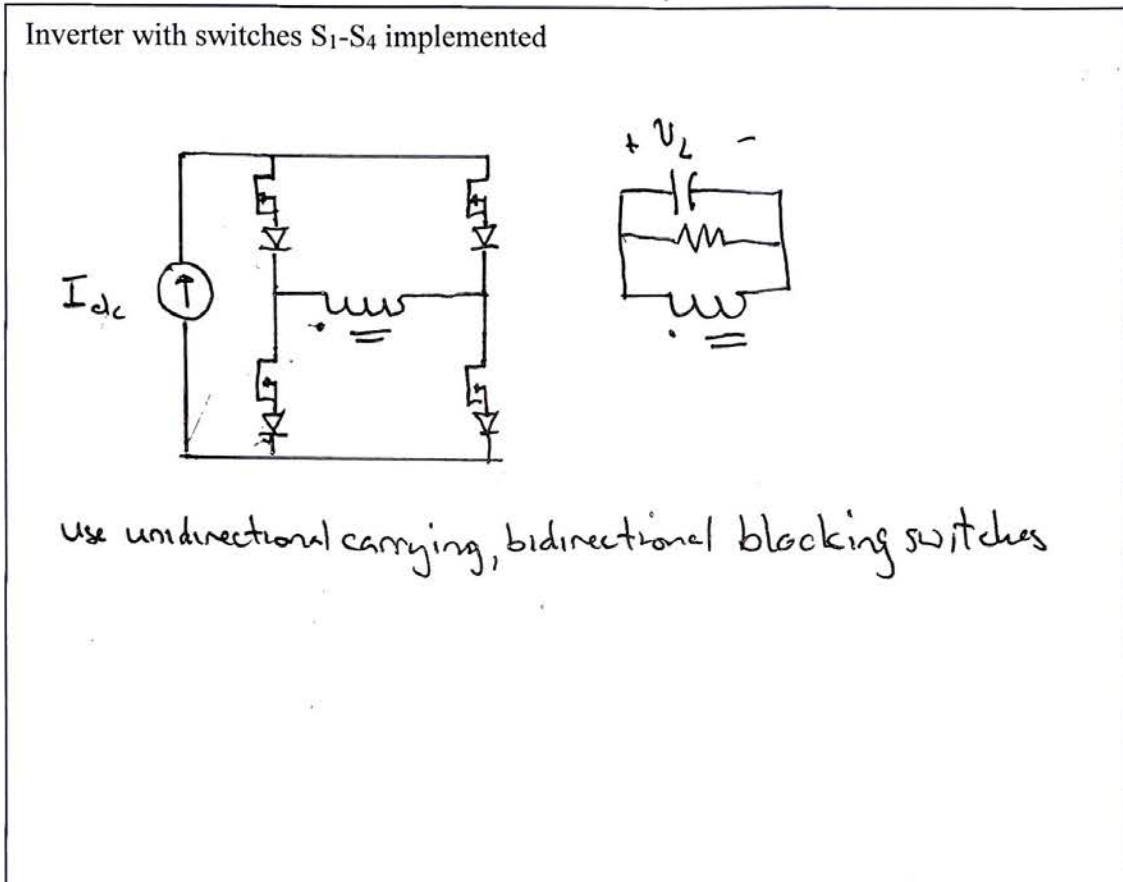 Inverter with switches S₁-S₄ implemented
+ V_L -
I_dc
use unidirectional carrying, bidirectional blocking switches